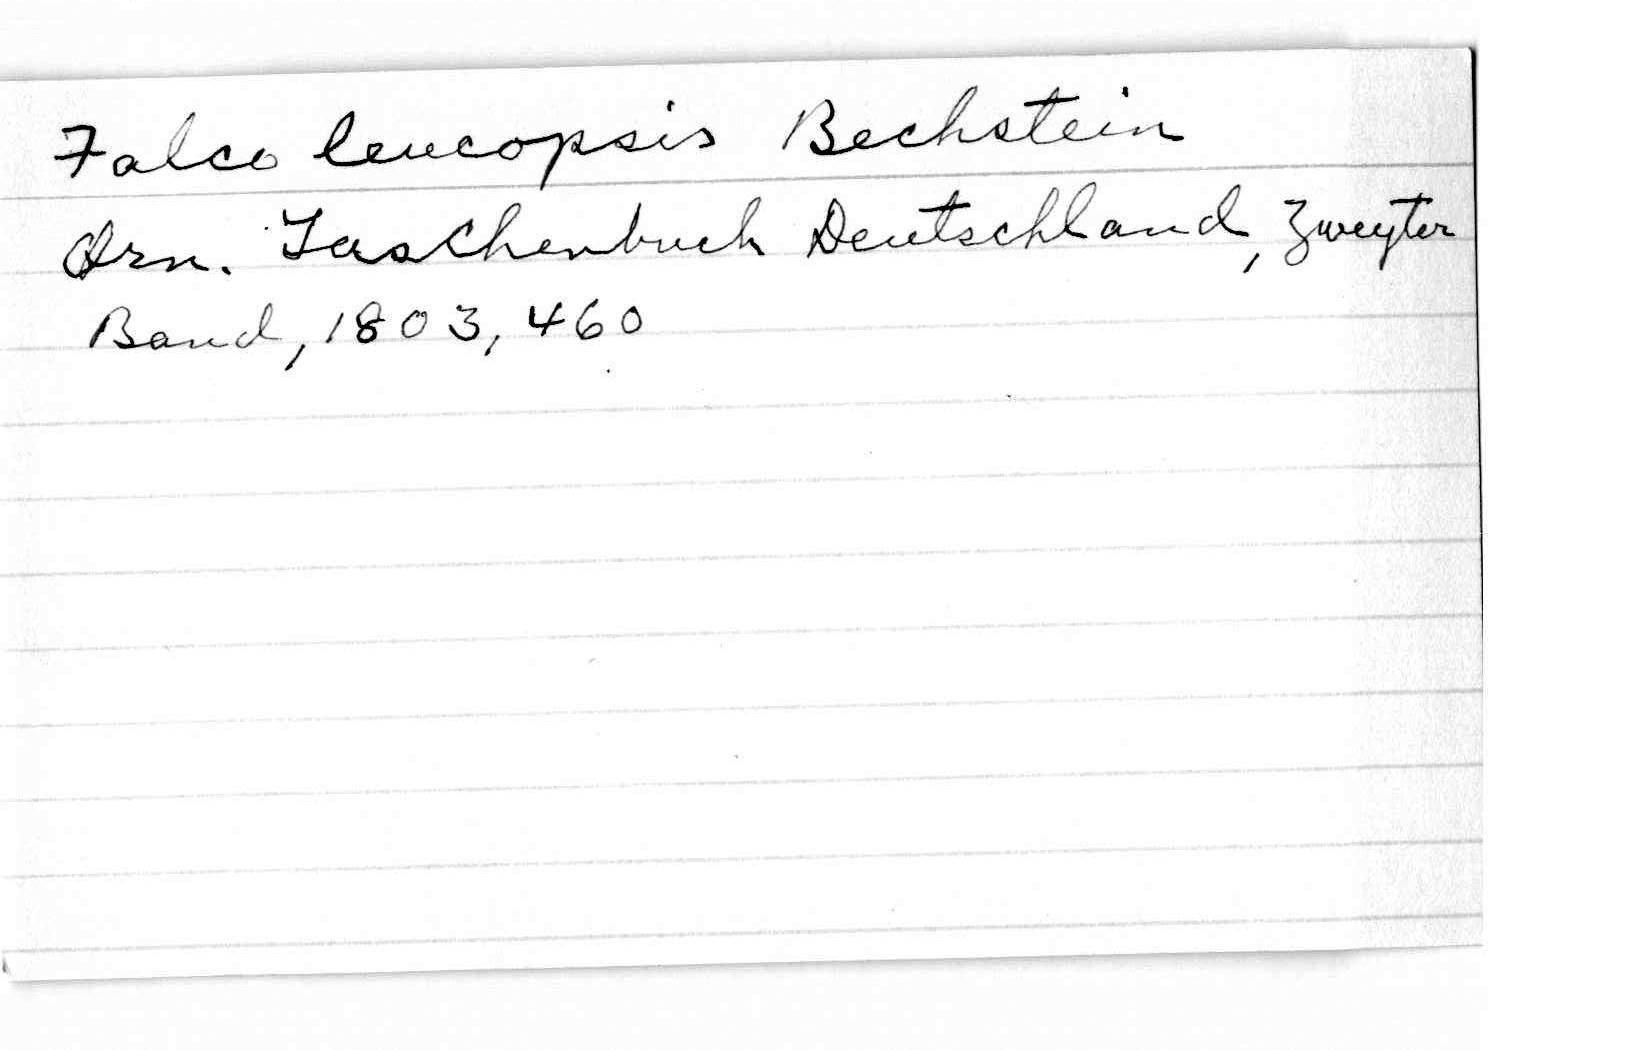 Falco leucopsis Bechstein
Orn. Taschenbuch Deutschland, Zweyter
Band, 1803, 460